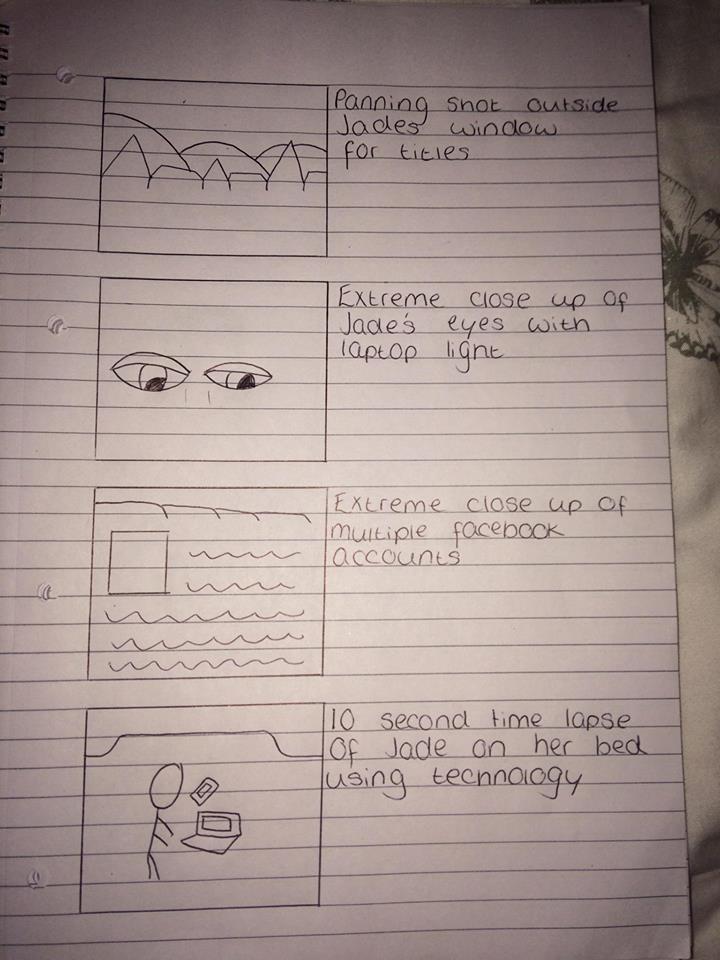 Panning shot outside
Jades window
for titles
Extreme close up of
Jade's eyes with
laptop light
Extreme close up of
multiple facebook
accounts
10 second time lapse
of Jade on her bed
using technology